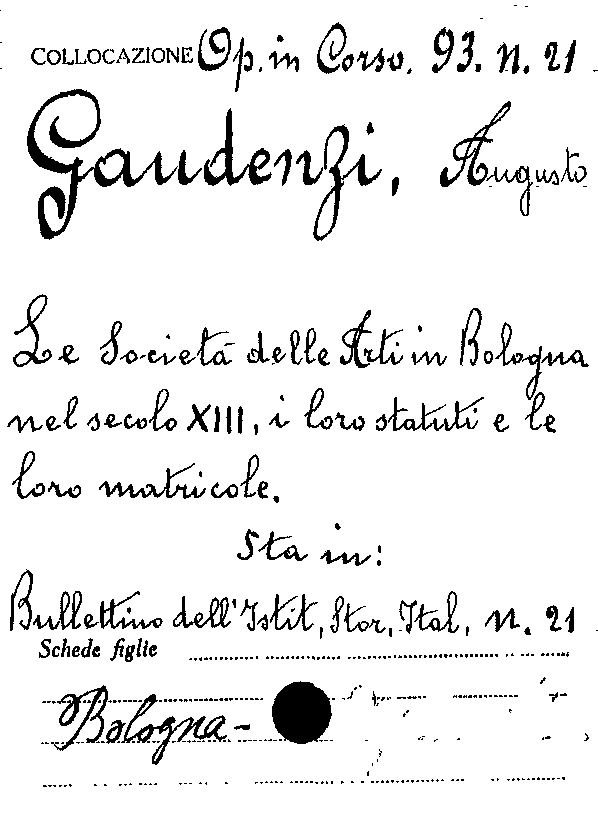 COLLOCAZIONE Op. in Corso. 93. n. 21
Gaudenzi, Augusto
Le Società delle Arti in Bologna
nel secolo XIII, i loro statuti e le
loro matricole.
Sta in:
Bullettino dell'Istit, Stor, Ital, n. 21
Schede figlie
Bologna-